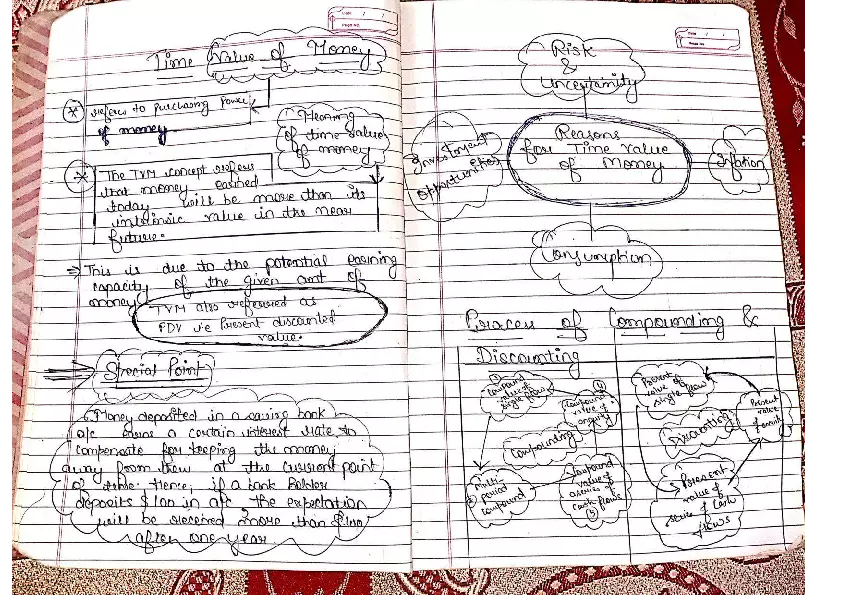 Date / /
Page No.
Time Value of Money
* Refers to purchasing Power
of money
Meaning
of time value
of money
* The TVM concept refers
that money earned
today will be more than its
intrinsic value in the near
future.
⇒ This is due to the potential earning
capacity of the given amt of
money
TVM also referred as
PDV i.e Present discounted
value.
Special Point
Money deposited in a saving bank
a/c earns a certain interest rate to
compensate for keeping the money
away from them at the current point
of time. Hence, if a bank holder
deposits $100 in a/c the expectation
will be received more than $100
after one year.
Date / /
Page No.
Risk
&
Uncertainity
Reasons
for Time Value
of Money
Investment
opportunities
Inflation
Consumption
Process of Compounding &
Discounting
① Compound
value of
single flow
④
Compound
value of
annuity
Compounding
② Multi
period
compound
Compound
value of
a series of
cash flows
③
Present
value of a
single flow
Present
value
of annuity
Discounting
Present
value of
series of Cash
flows